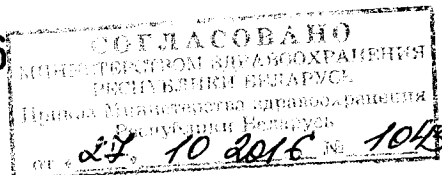 СОГЛАСОВАНО
МИНИСТЕРСТВОМ ЗДРАВООХРАНЕНИЯ
РЕСПУБЛИКИ БЕЛАРУСЬ
Приказ Министерства здравоохранения
Республики Беларусь
от «27» 10 2016 №